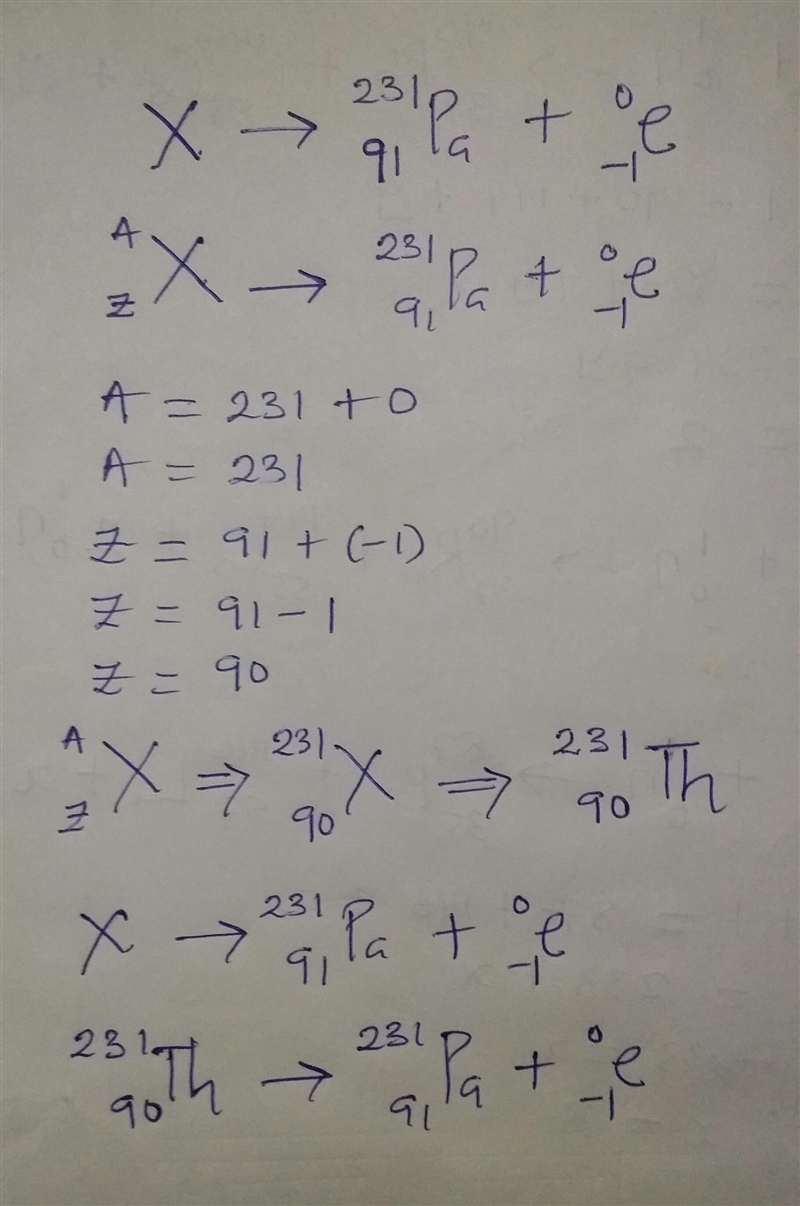 X → ²³¹₉₁Pa + ⁰₋₁e
ᴬ_Z X → ²³¹₉₁Pa + ⁰₋₁e
A = 231 + 0
A = 231
Z = 91 + (-1)
Z = 91 - 1
Z = 90
ᴬ_Z X ⇒ ²³¹₉₀X ⇒ ²³¹₉₀Th
X → ²³¹₉₁Pa + ⁰₋₁e
²³¹₉₀Th → ²³¹₉₁Pa + ⁰₋₁e